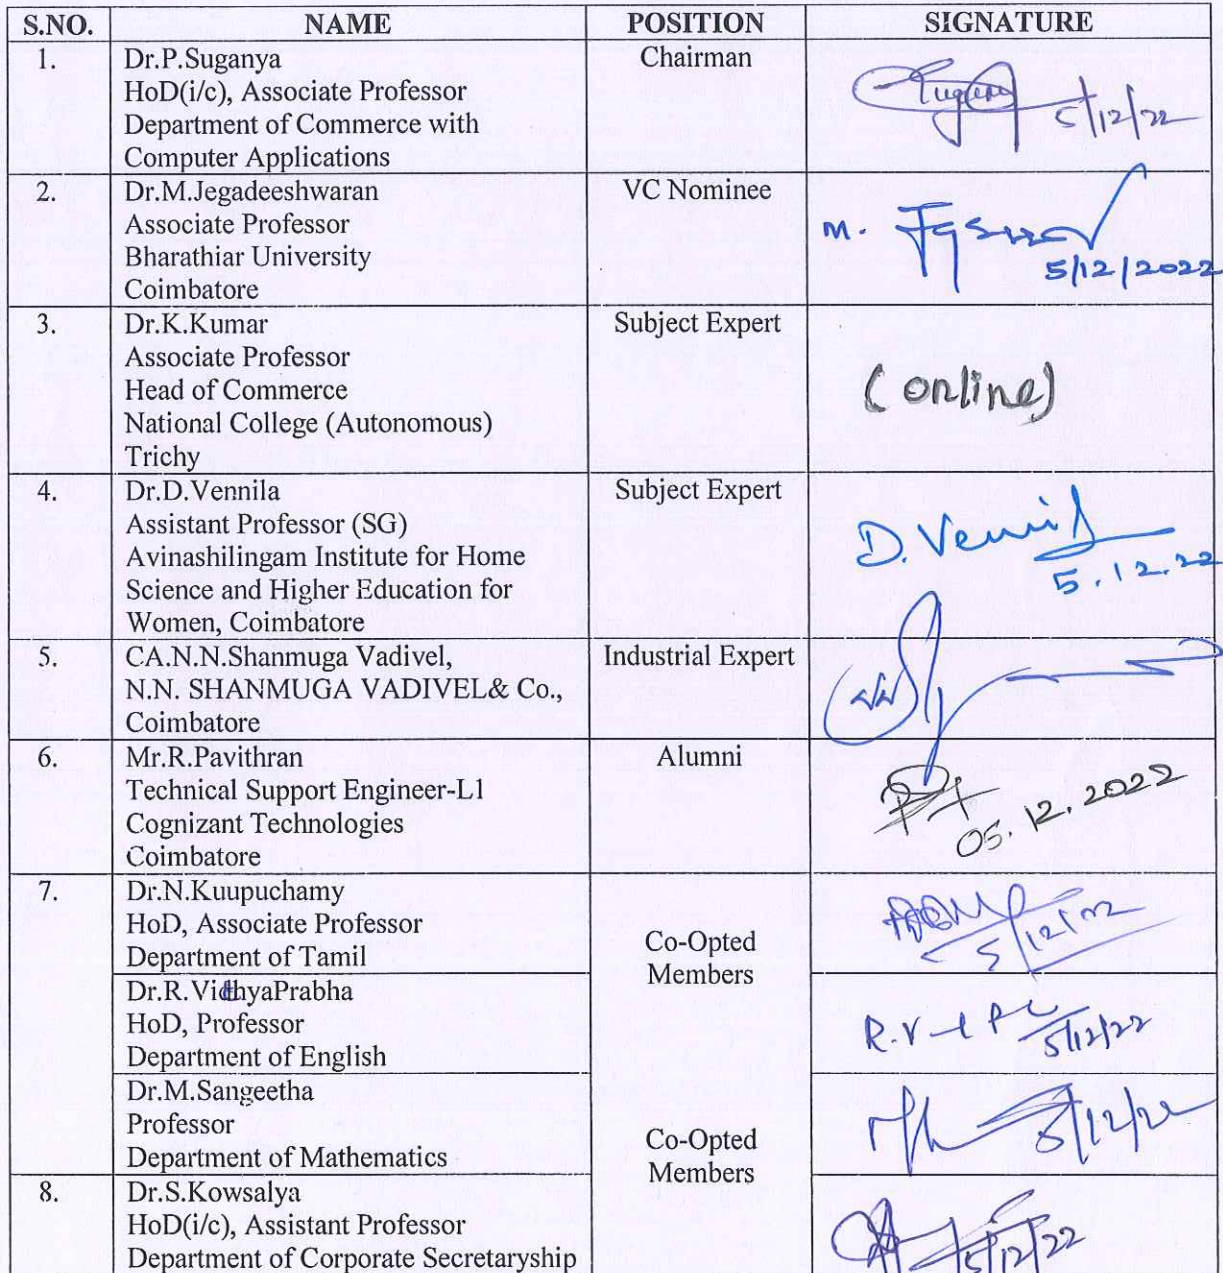 S.NO. NAME POSITION SIGNATURE
1. Dr.P.Suganya Chairman
HoD(i/c), Associate Professor
Department of Commerce with
Computer Applications
5/12/22
2. Dr.M.Jegadeeshwaran VC Nominee
Associate Professor
Bharathiar University
Coimbatore
M.
5/12/2022
3. Dr.K.Kumar Subject Expert
Associate Professor
Head of Commerce
National College (Autonomous)
Trichy
(online)
4. Dr.D.Vennila Subject Expert
Assistant Professor (SG)
Avinashilingam Institute for Home
Science and Higher Education for
Women, Coimbatore
D.
5.12.22
5. CA.N.N.Shanmuga Vadivel, Industrial Expert
N.N. SHANMUGA VADIVEL& Co.,
Coimbatore
6. Mr.R.Pavithran Alumni
Technical Support Engineer-L1
Cognizant Technologies
Coimbatore
05.12.2022
7. Dr.N.Kuupuchamy
HoD, Associate Professor
Department of Tamil
Co-Opted
Members
5/12/22
Dr.R.VidhyaPrabha
HoD, Professor
Department of English
5/12/22
Dr.M.Sangeetha
Professor
Department of Mathematics
Co-Opted
Members
5/12/22
8. Dr.S.Kowsalya
HoD(i/c), Assistant Professor
Department of Corporate Secretaryship
5/12/22